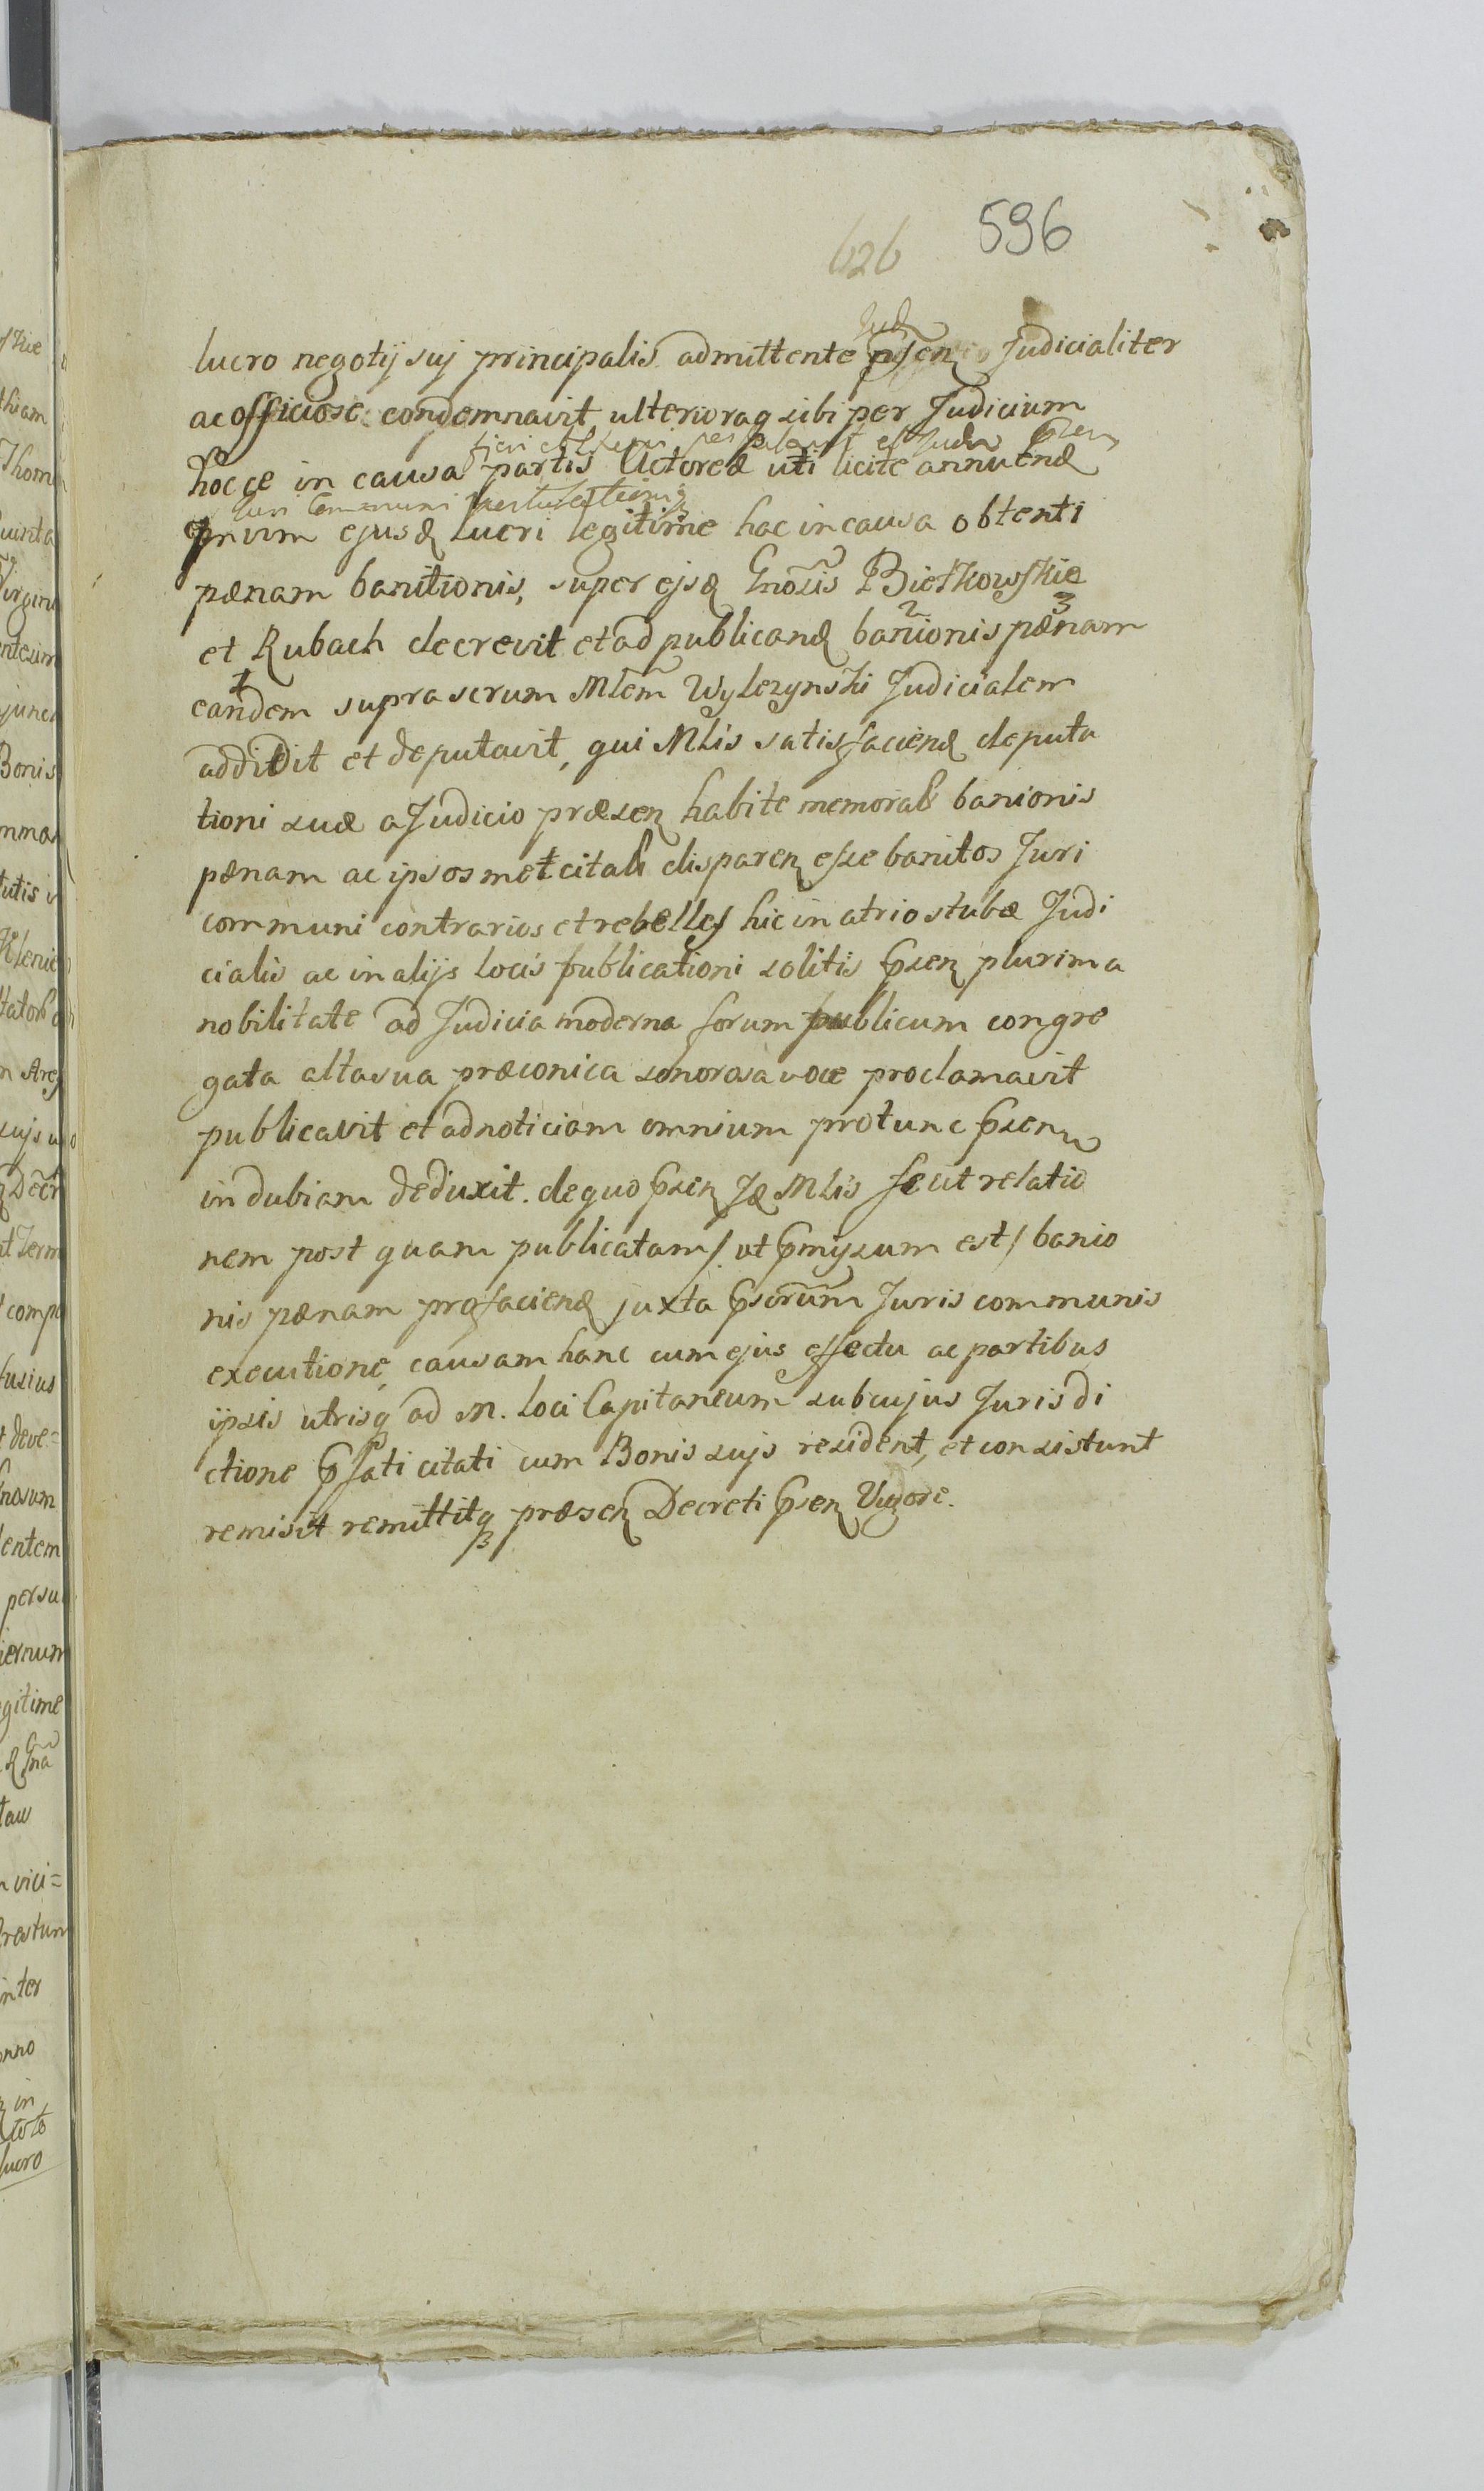 626 596
lucro negotij suj principalis admittente Judicialiter
ac officiose condemnavit ulteriora sibi per Judicium
hocce in causa partis Actoreæ uti licite annuend
Juri Communi
ejusd lucri legitime hac in causa obtenti
pænam banitionis, super ejsd Gnosis Bietkowskie
et Rubach decrevit et ad publicand banionis pænam
eandem suprascrum Mlem Wylezynski Judicialem
addidit et deputavit, qui Mlis satisfaciend deputa
tioni suæ a Judicio præsen habite memorab banionis
pænam ac ipsosmet citatos disparen esse banitos Juri
communi contrarios et rebelles hic in atrio stubæ Judi
cialis ac in alijs locis publicationi solitis psen plurima
nobilitate ad Judicia moderna forum publicum congre
gata alta sua præconica sonorosa voce proclamavit
publicavit et ad noticiam omnium protunc psen
indubiam deduxit. de quo psen Jd Mlis fecit relatio
nem post quam publicatam /. ut pmisum est / banio
nis pænam pro faciend juxta pscrum Juris communis
executione causam hanc cum ejus effectu ac partibus
ipsis utrisq ad M. loci Capitaneum sub cujus Jurisdi
ctione pfati citati cum Bonis sujs resident, et consistunt
remisit remittitq præsen Decreti psen Vigore.